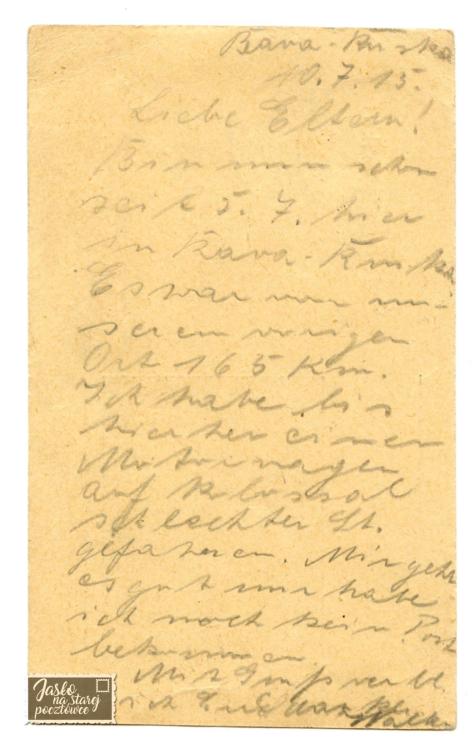 Rava-Ruska
10.7.15.
Liebe Eltern!
Bin nun schon
seit 5.7. hier
in Rava-Ruska
Es war von un-
serem vorigen
Ort 165 Km.
Ich habe bis
hierher einen
Motorwagen
auf kolossal
schlechter St.
gefahren. Mir geht
es gut nur habe
ich noch kein Post
bekommen
Mit Gruß verbl.
ich Euer
Jasło
na starej
pocztówce